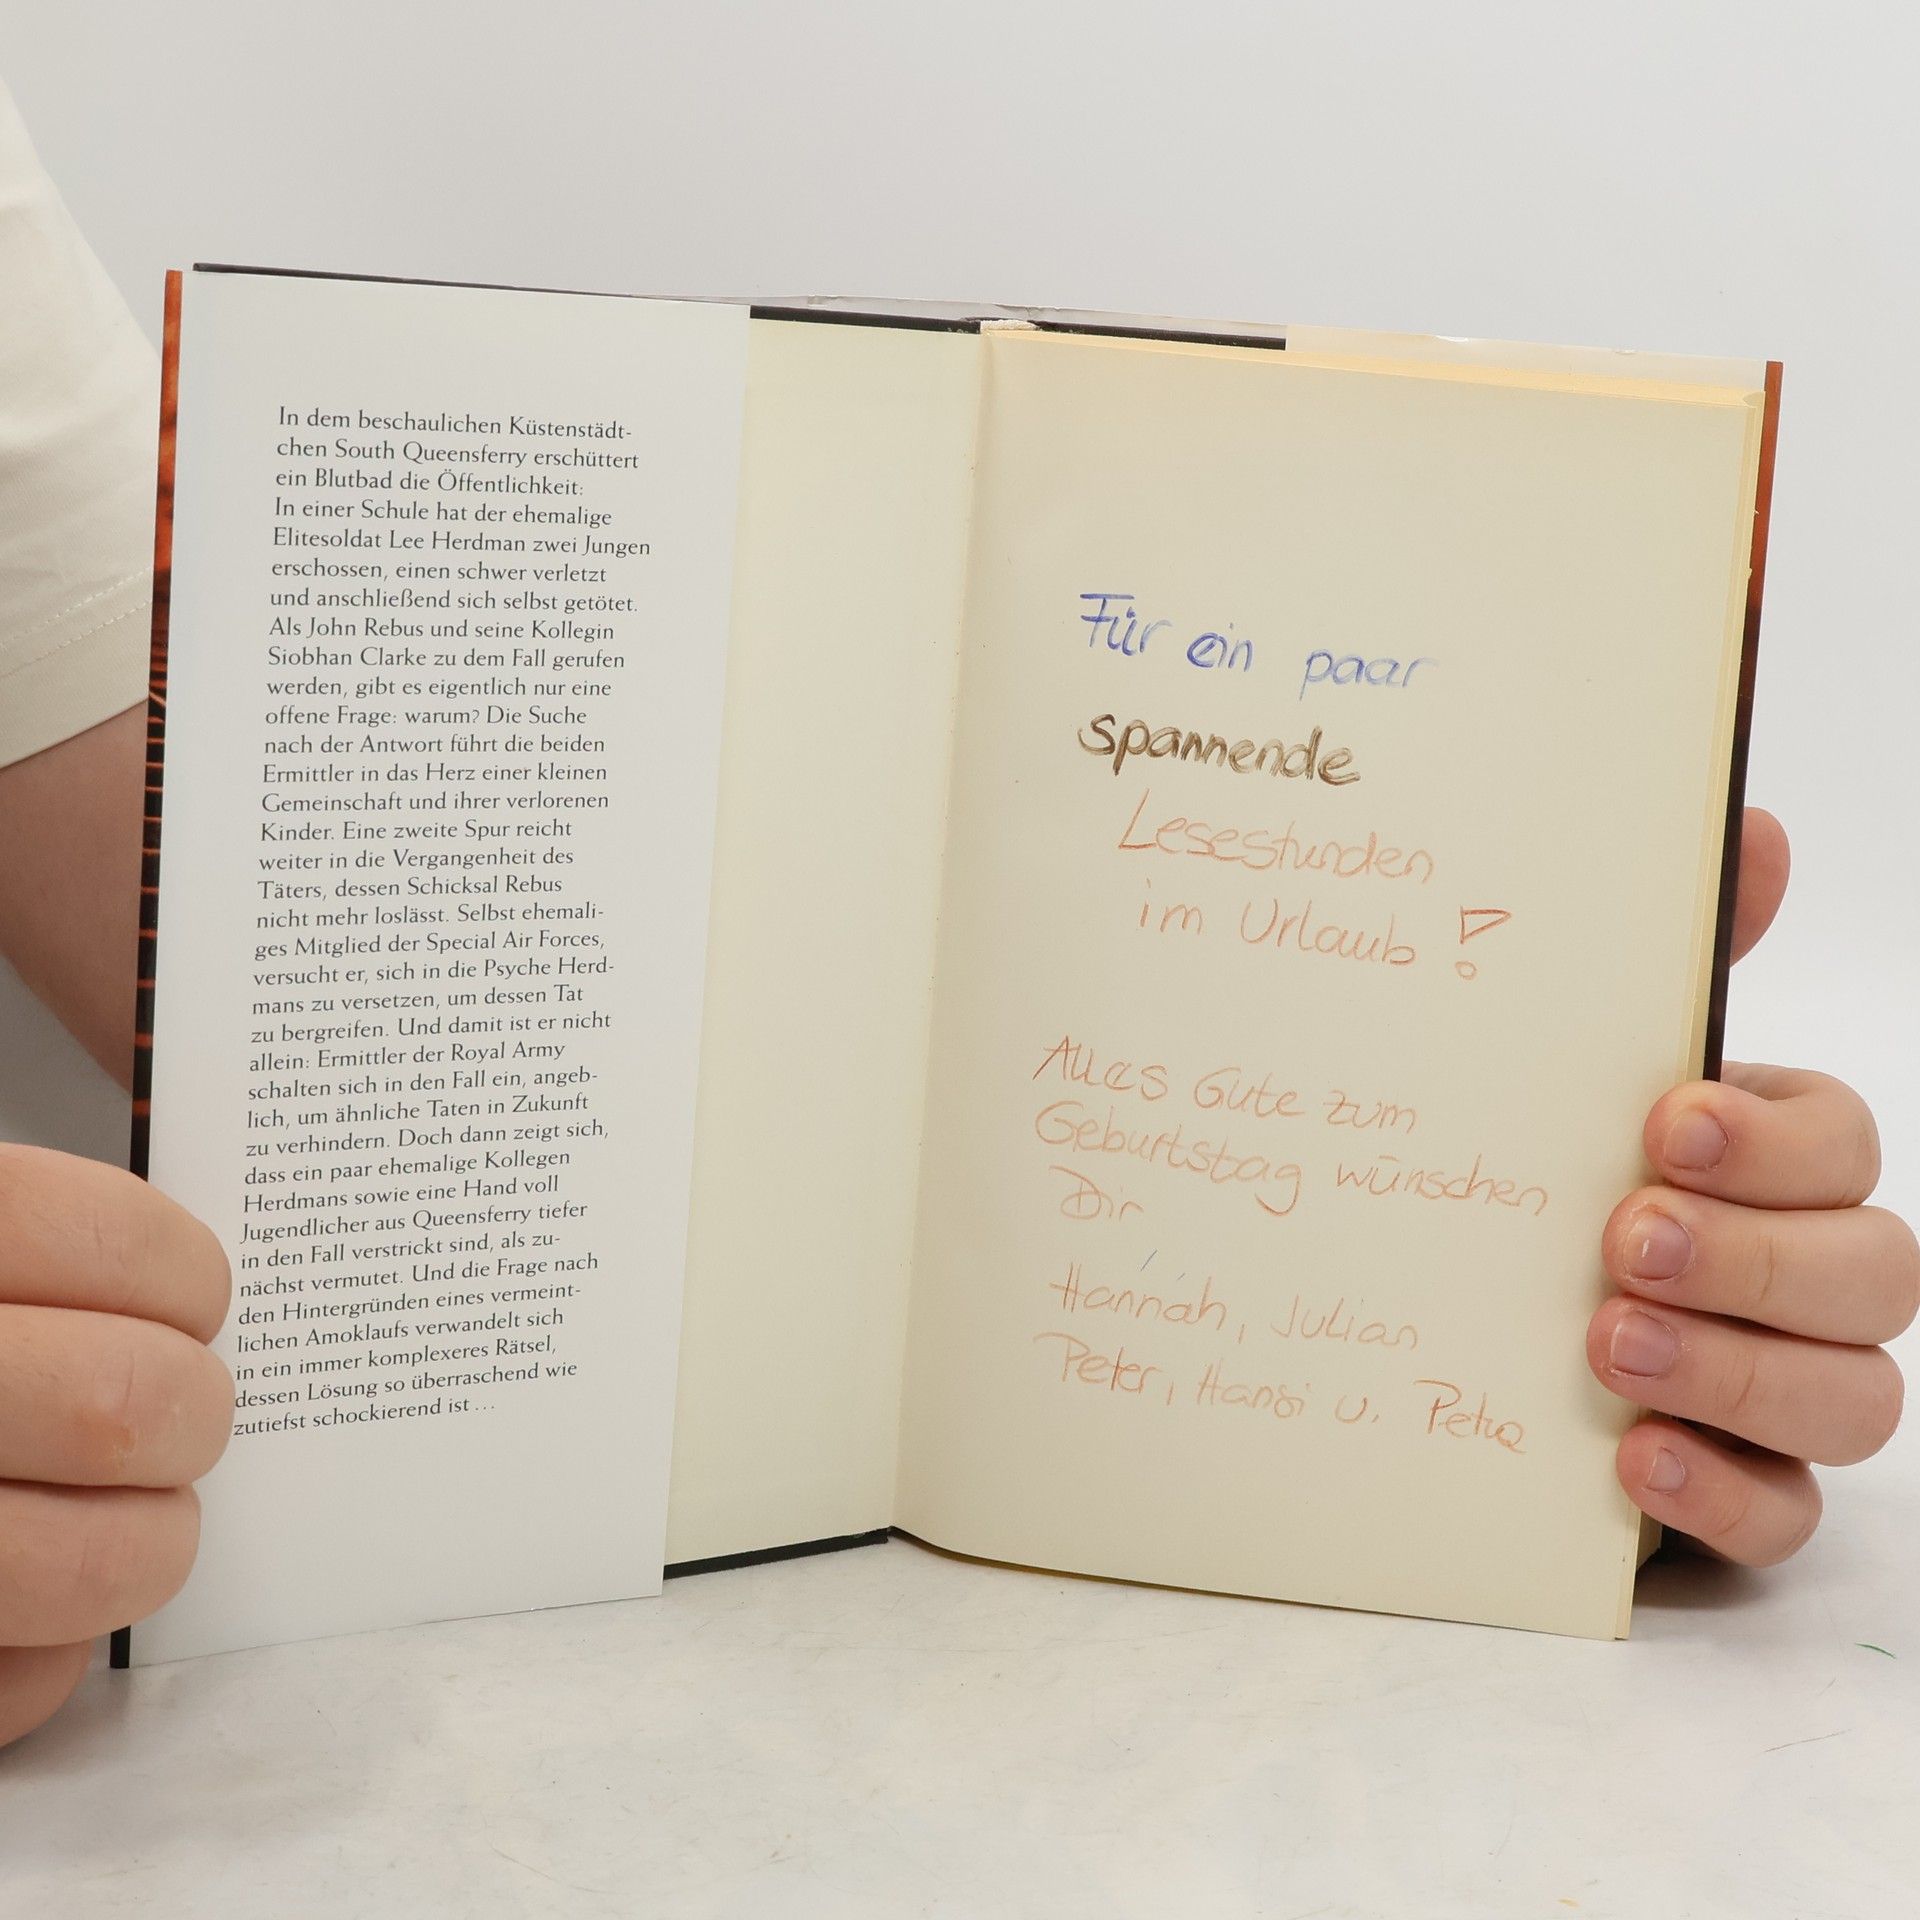 In dem beschaulichen Küstenstädt-
chen South Queensferry erschüttert
ein Blutbad die Öffentlichkeit:
In einer Schule hat der ehemalige
Elitesoldat Lee Herdman zwei Jungen
erschossen, einen schwer verletzt
und anschließend sich selbst getötet.
Als John Rebus und seine Kollegin
Siobhan Clarke zu dem Fall gerufen
werden, gibt es eigentlich nur eine
offene Frage: warum? Die Suche
nach der Antwort führt die beiden
Ermittler in das Herz einer kleinen
Gemeinschaft und ihrer verlorenen
Kinder. Eine zweite Spur reicht
weiter in die Vergangenheit des
Täters, dessen Schicksal Rebus
nicht mehr loslässt. Selbst ehemali-
ges Mitglied der Special Air Forces,
versucht er, sich in die Psyche Herd-
mans zu versetzen, um dessen Tat
zu bergreifen. Und damit ist er nicht
allein: Ermittler der Royal Army
schalten sich in den Fall ein, angeb-
lich, um ähnliche Taten in Zukunft
zu verhindern. Doch dann zeigt sich,
dass ein paar ehemalige Kollegen
Herdmans sowie eine Hand voll
Jugendlicher aus Queensferry tiefer
in den Fall verstrickt sind, als zu-
nächst vermutet. Und die Frage nach
den Hintergründen eines vermeint-
lichen Amoklaufs verwandelt sich
in ein immer komplexeres Rätsel,
dessen Lösung so überraschend wie
zutiefst schockierend ist ...
Für ein paar
spannende
Lesestunden
im Urlaub !
Alles Gute zum
Geburtstag wünschen
Dir
Hannah, Julian
Peter, Hansi u. Petra